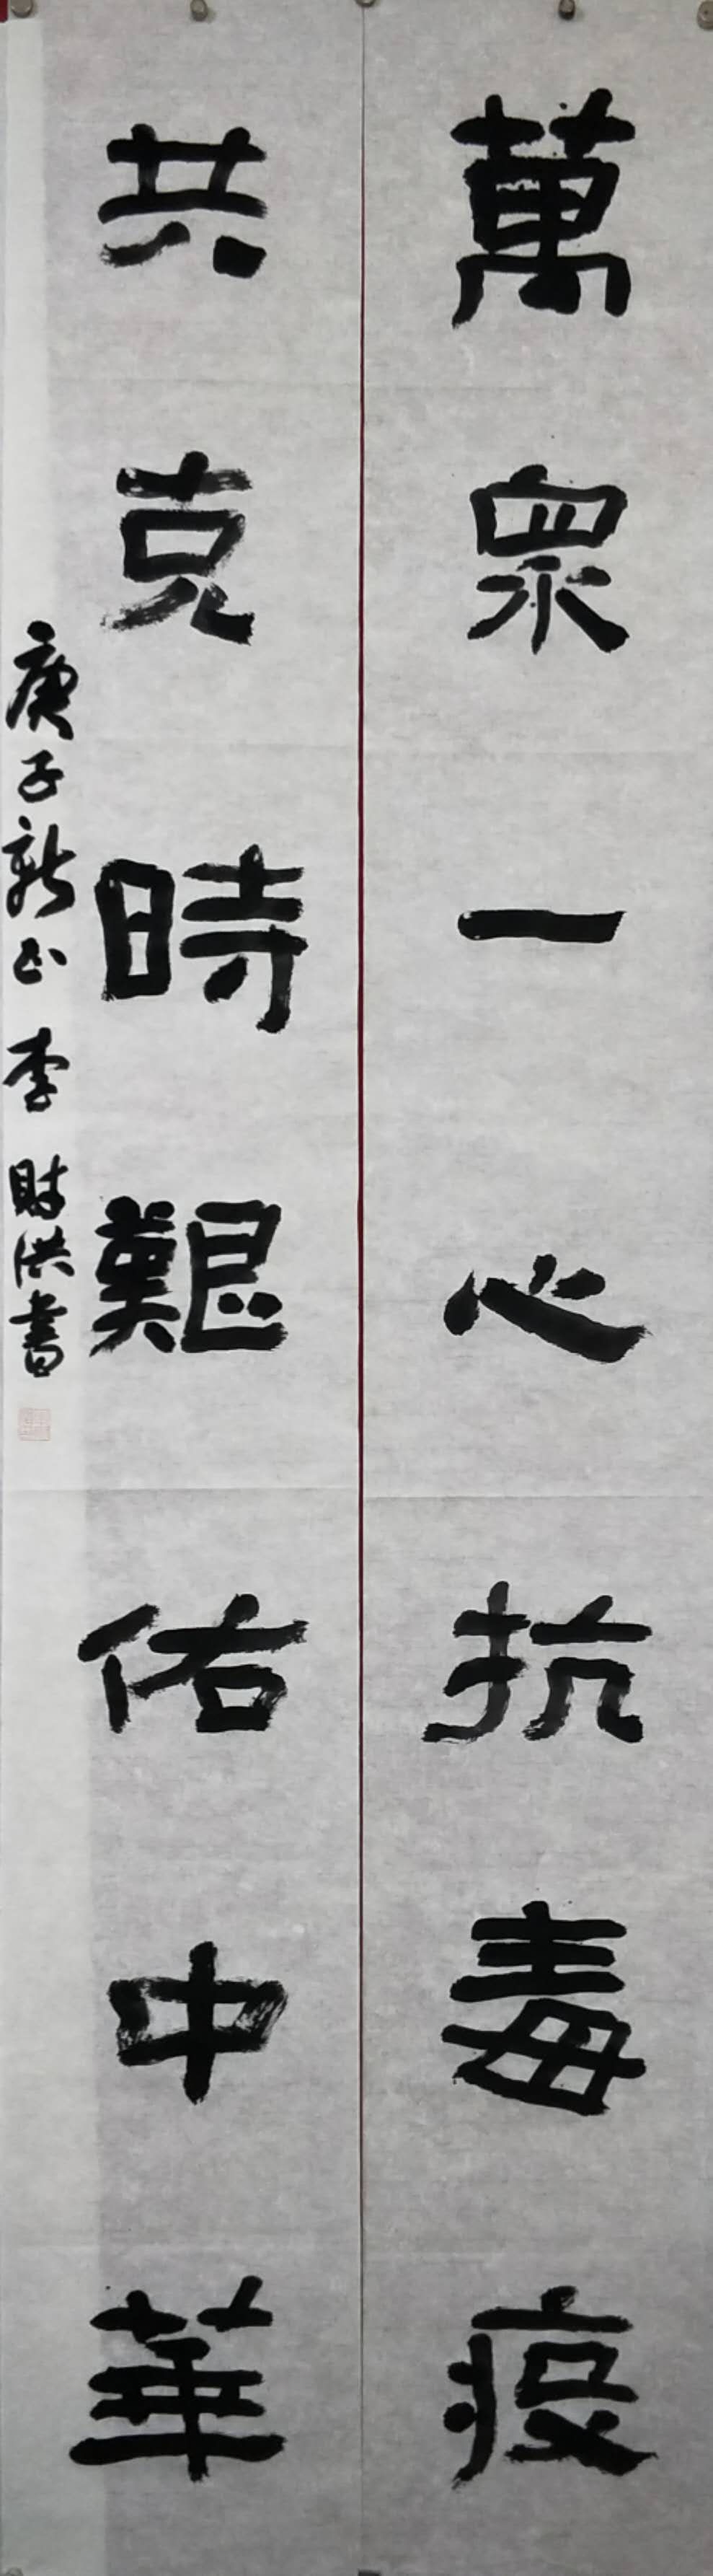 萬衆一心抗毒疫
共克時艱佑中華
庚子新正李財洪書